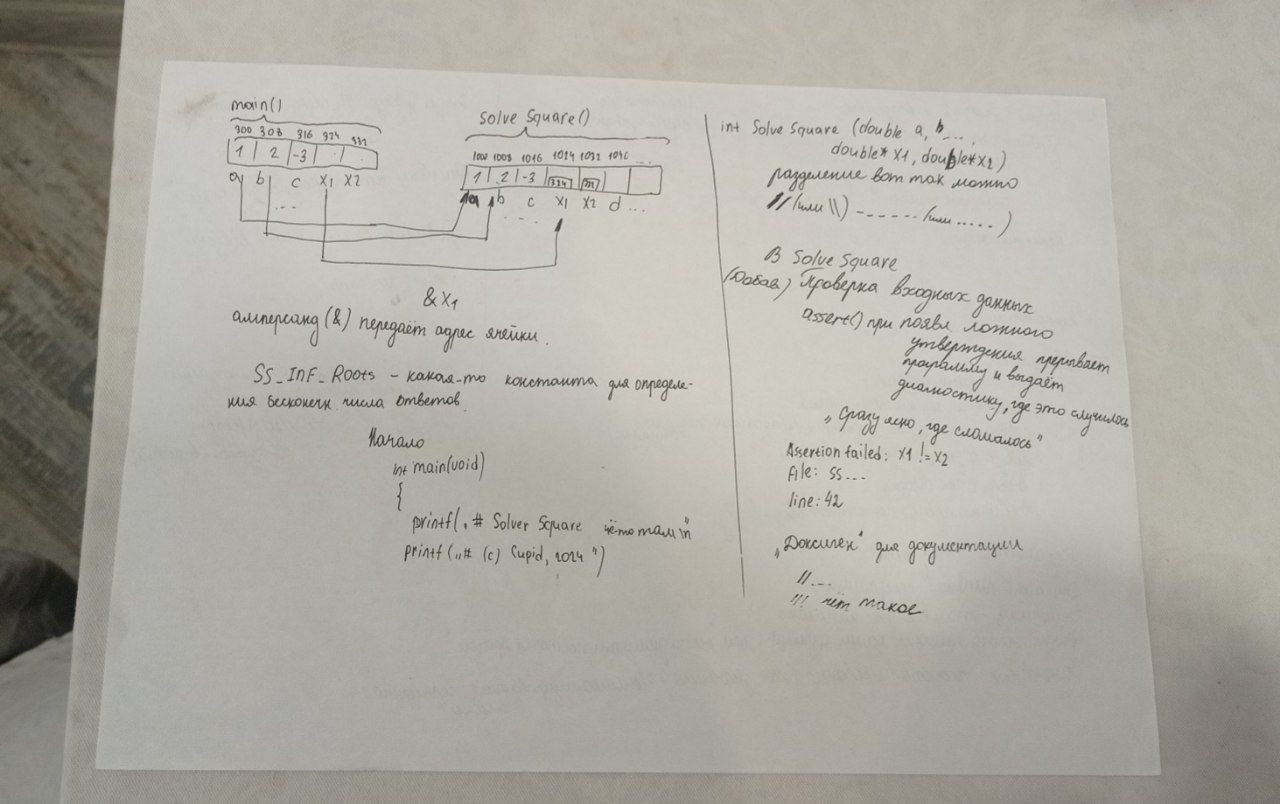 main()
300 308 316 324 332
1 2 -3
a b c x1 x2
...
Solve Square()
1000 1008 1016 1024 1032 1040 ...
1 2 -3 324 332
a b c x1 x2 d ...
....
& x1
амперсанд (&) передаёт адрес ячейки.
SS_INF_Roots – какая-то константа для определе-
ния бесконечн. числа ответов
Начало
int main(void)
{
printf(„# Solver Square чёто там \n"
printf(„# (c) Cupid, 2024 ")
int Solve Square (double a, b ...
double* x1, double* x2)
разделение вот так можно
// (или \\) ------ (или .....)
В Solve Square
Проверка входных данных
assert() при появл ложного
утверждения прерывает
программу и выдаёт
диагностику, где это случилось
„Сразу ясно, где сломалось"
Assertion failed: x1 != x2
File: SS...
line: 42
„Доксиген" для документации
//...
/// чёт такое